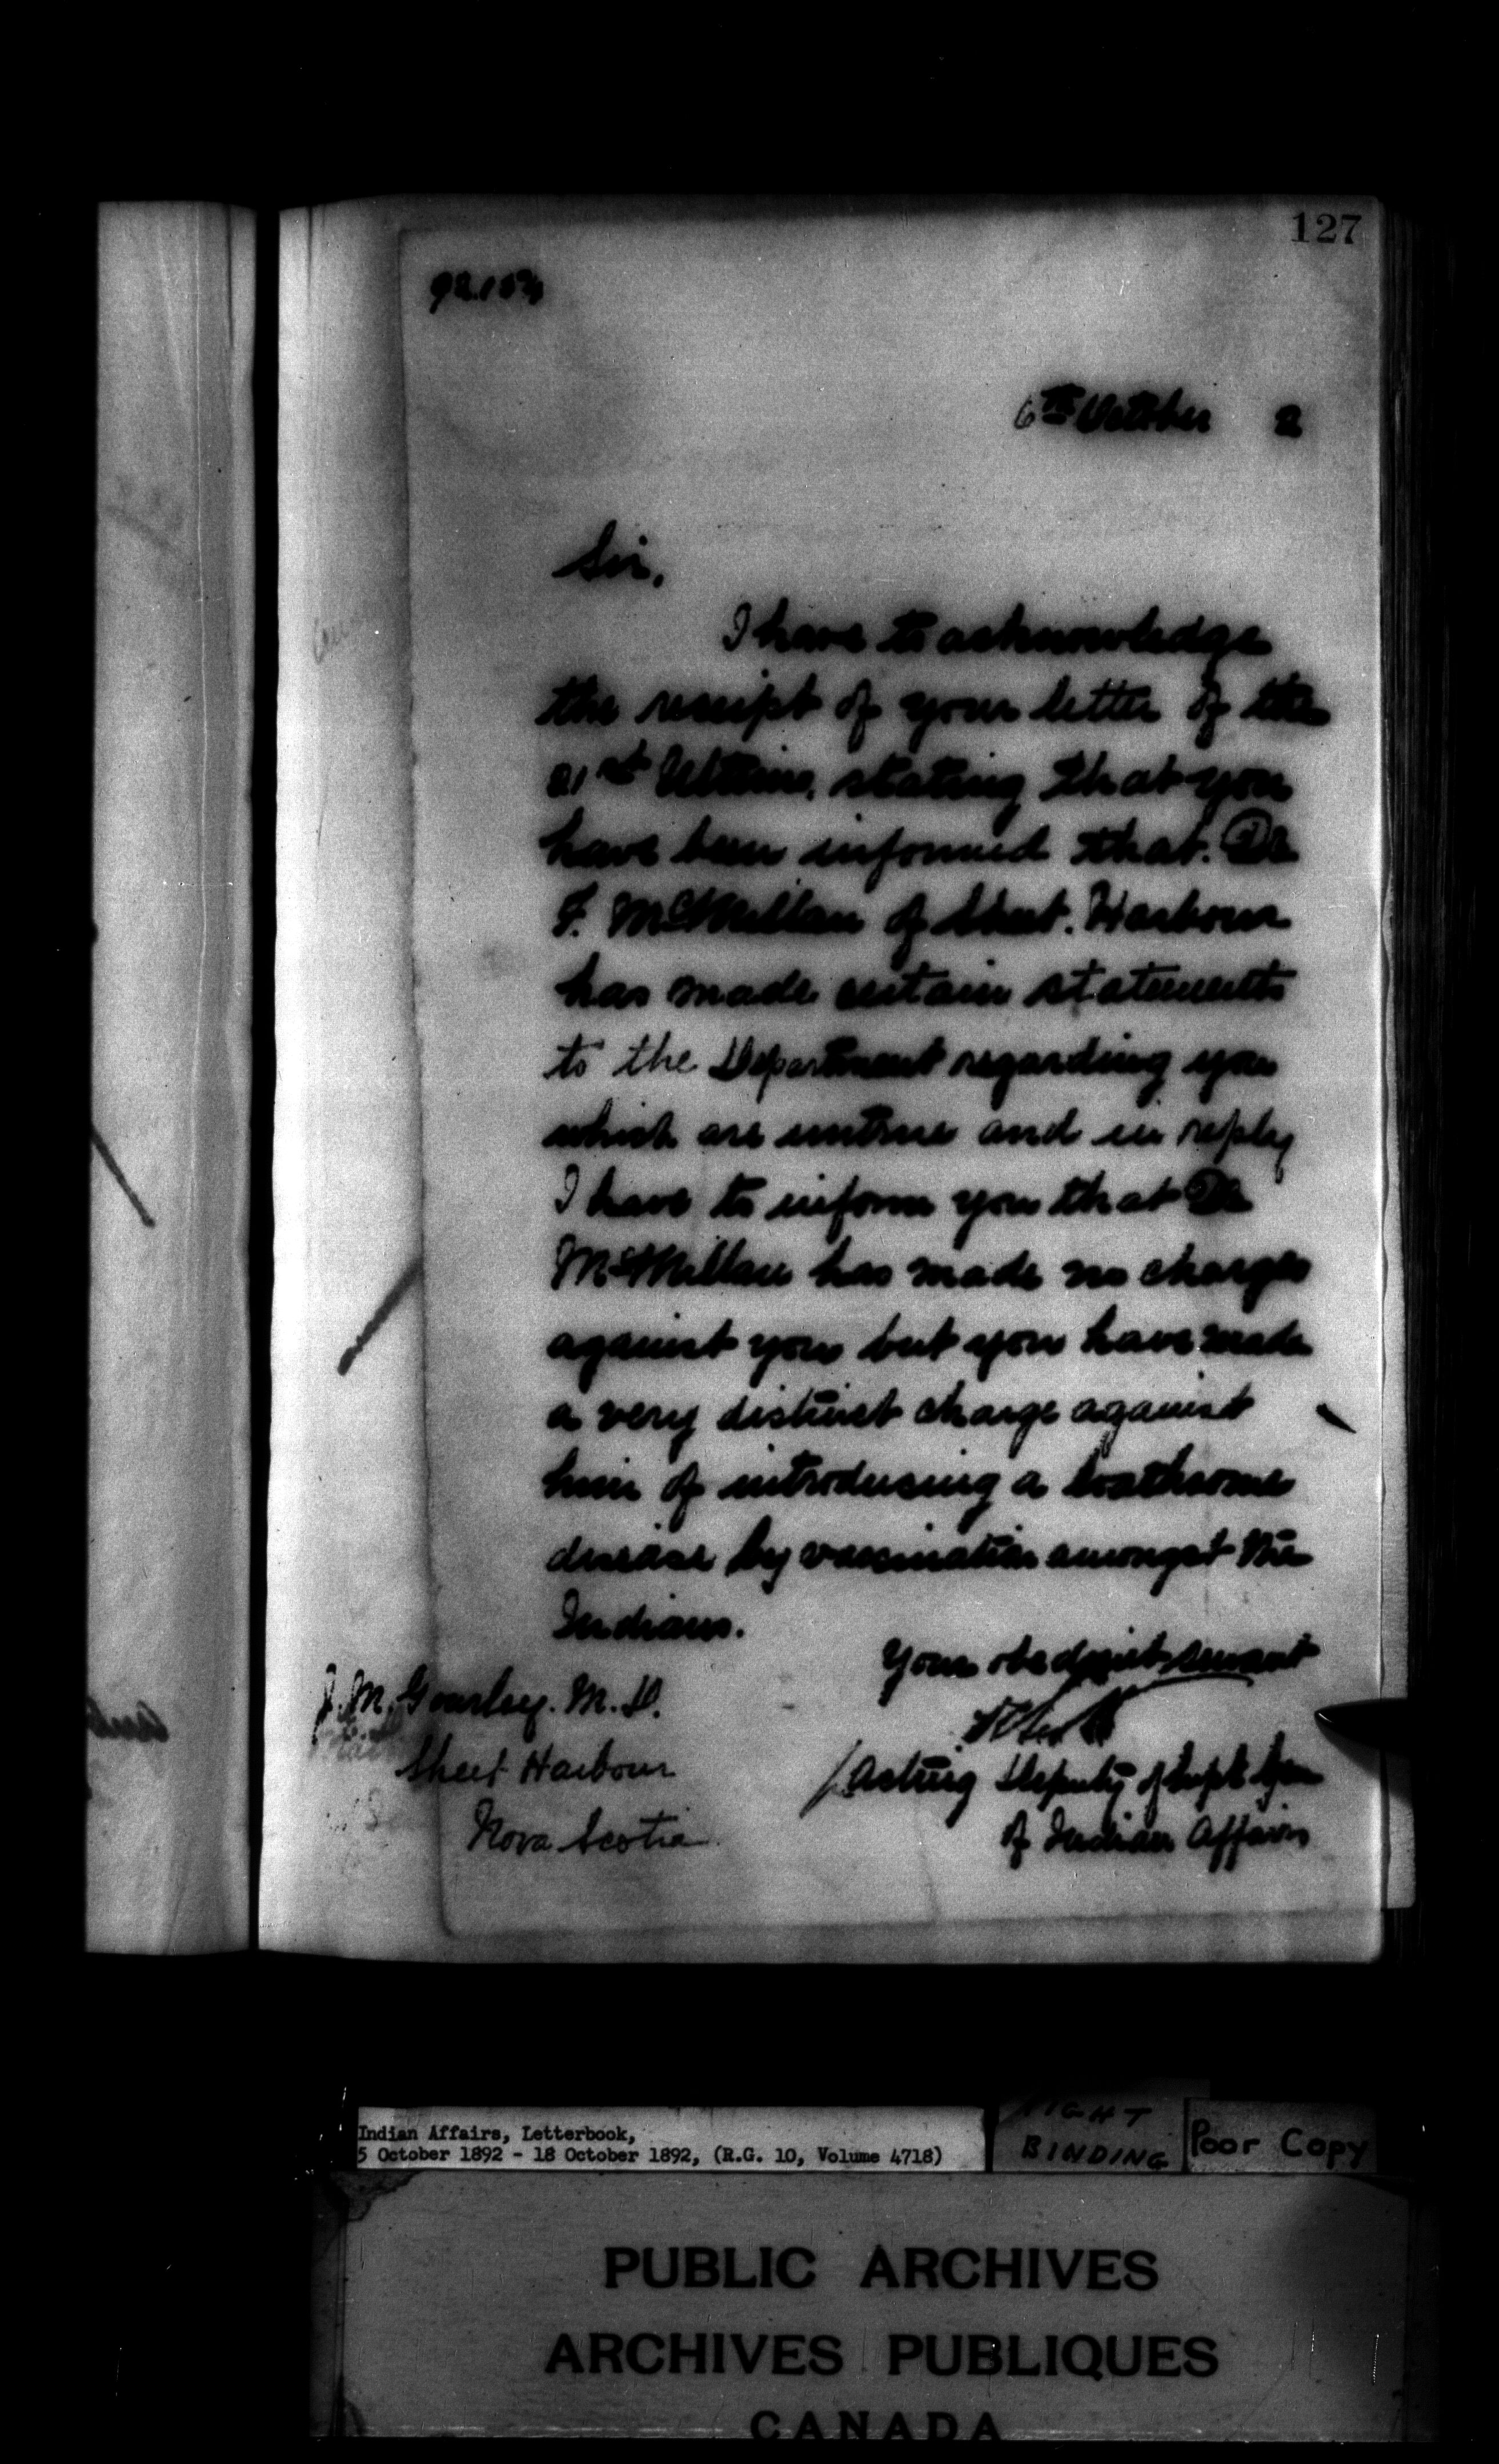 127
6th October 2
Sir,
I have to acknowledge
the receipt of your letter of the
21st Ultimo, stating that you
have been informed that Dr
F. McMillan of Sheet Harbour
has made certain statements
to the Department regarding you
which are untrue and in reply
I have to inform you that Dr
McMillan has made no charges
against you but you have made
a very distinct charge against
him of introducing a loathsome
disease by vaccination amongst the
Indians.
Your obedient servant
J. M. Gourley. M. D.
Sheet Harbour
Nova Scotia
Acting Deputy of Supt Gen
of Indian Affairs
Indian Affairs, Letterbook,
5 October 1892 - 18 October 1892, (R.G. 10, Volume 4718)
BINDING
Poor Copy
PUBLIC ARCHIVES
ARCHIVES PUBLIQUES
CANADA